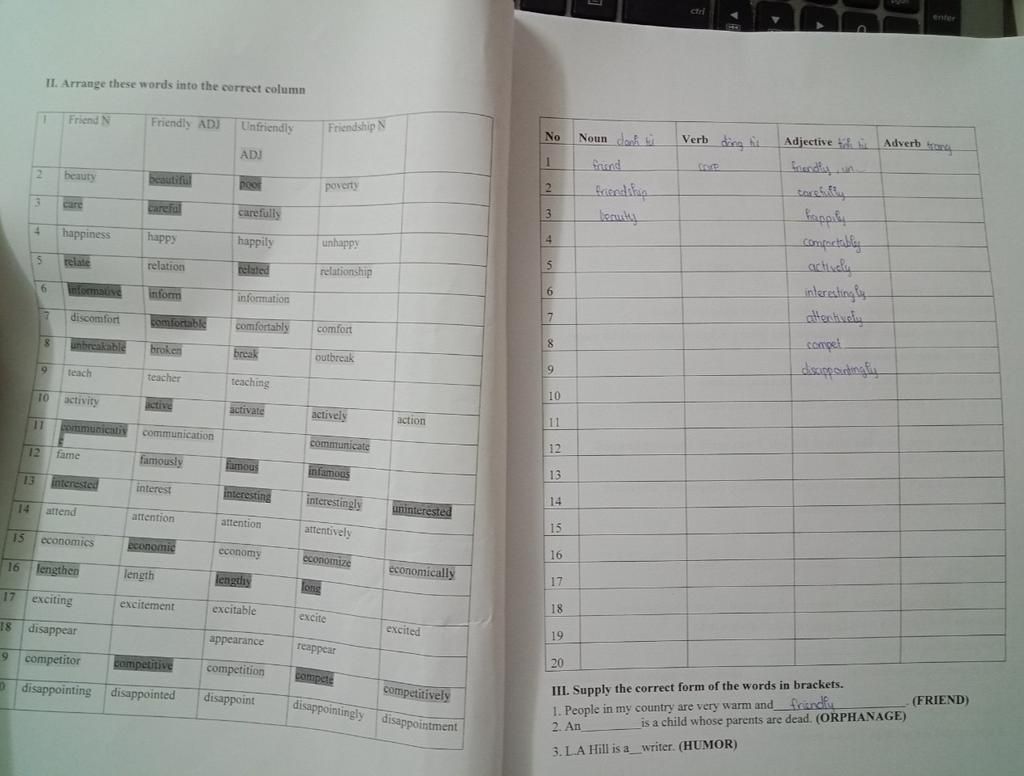 II. Arrange these words into the correct column
1 Friend N Friendly ADJ Unfriendly ADJ Friendship N
2 beauty beautiful poor poverty
3 care careful carefully
4 happiness happy happily unhappy
5 relate relation related relationship
6 informative inform information
7 discomfort comfortable comfortably comfort
8 unbreakable broken break outbreak
9 teach teacher teaching
10 activity active activate actively action
11 communicative communication communicate
12 fame famously famous infamous
13 interested interest interesting interestingly uninterested
14 attend attention attention attentively
15 economics economic economy economize economically
16 lengthen length lengthy long
17 exciting excitement excitable excite excited
18 disappear appearance reappear
9 competitor competitive competition compete competitively
0 disappointing disappointed disappoint disappointingly disappointment
No Noun danh từ Verb động từ Adjective tính từ Adverb trạng
1 friend care friendly, un
2 friendship carefully
3 beauty happily
4 comfortably
5 actively
6 interestingly
7 attentively
8 compet
9 disappointingly
10
11
12
13
14
15
16
17
18
19
20
III. Supply the correct form of the words in brackets.
1. People in my country are very warm and friendly. (FRIEND)
2. An__________is a child whose parents are dead. (ORPHANAGE)
3. L.A Hill is a__writer. (HUMOR)
ctrl
enter